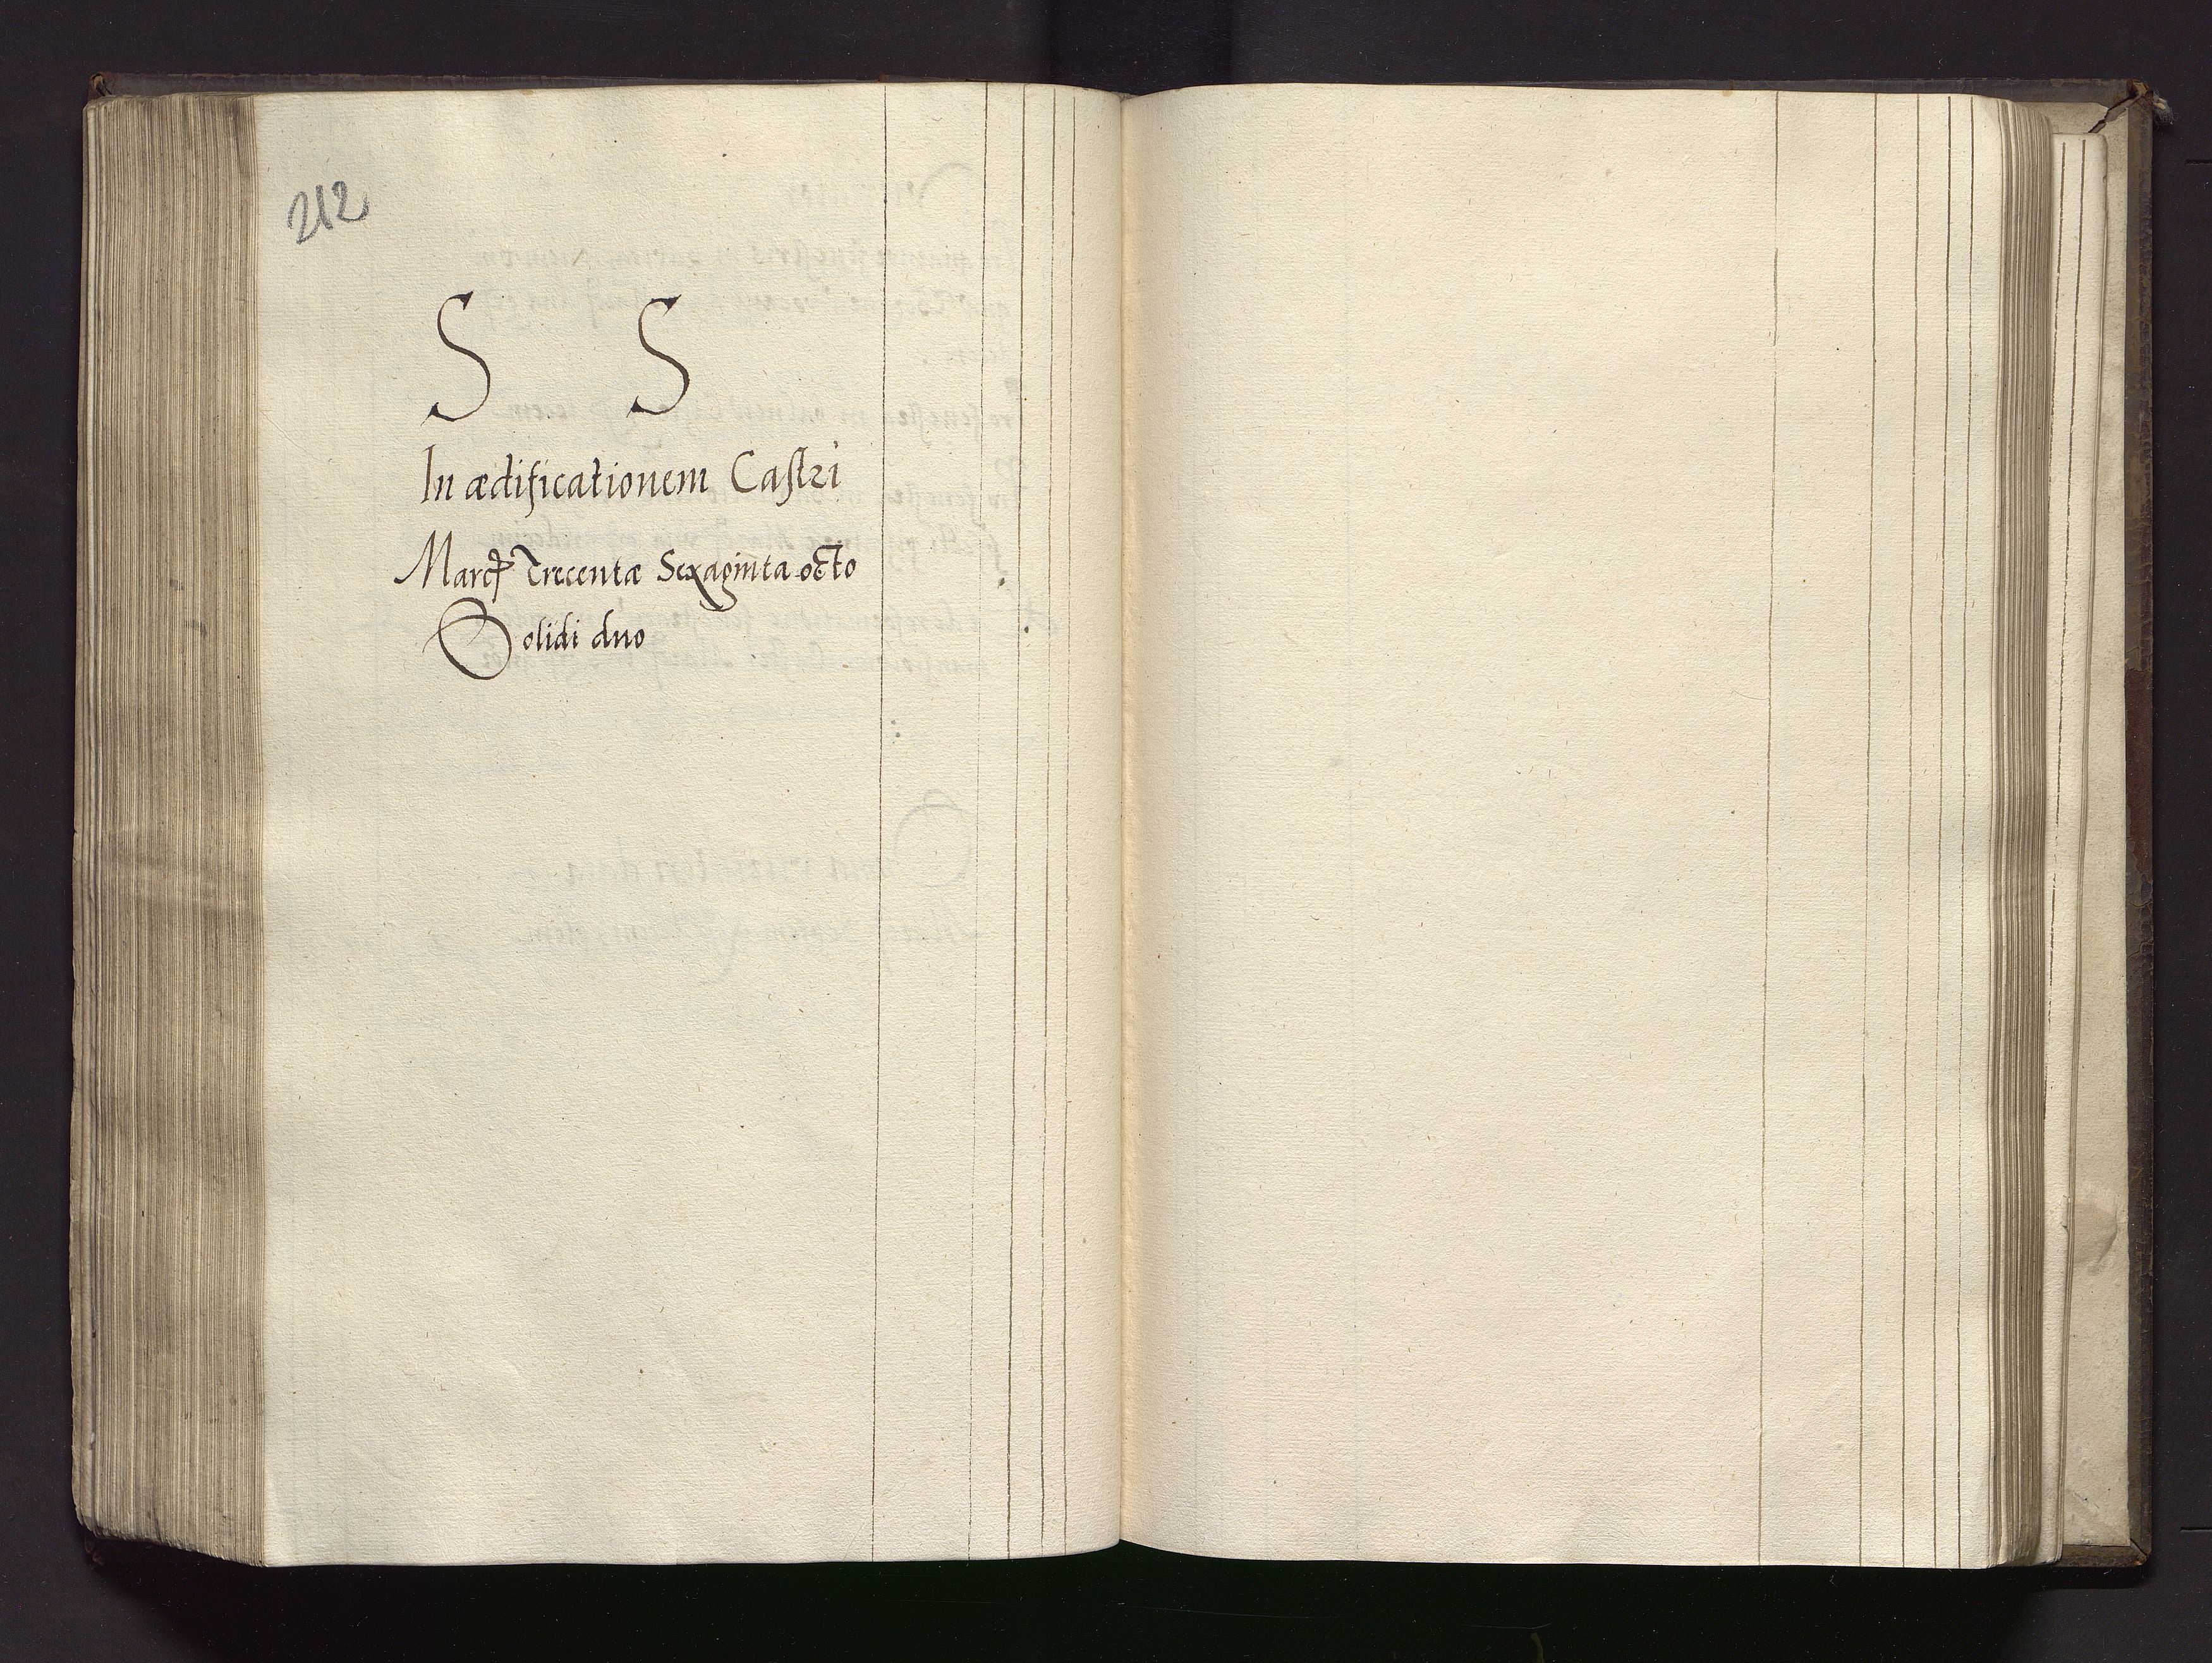 212
S S
In ædificationem Castri
Marcę Trecentæ Sexaginta octo
Solidi duo